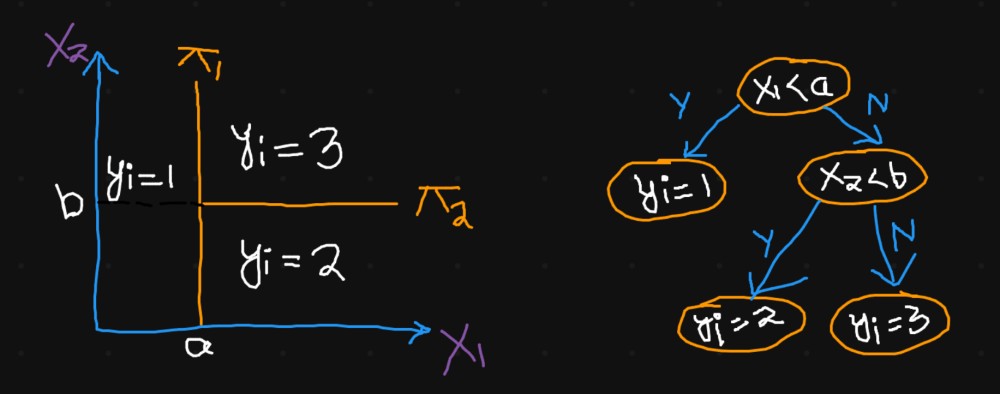 X₂
π₁
yi=1
yi=3
b
π₂
yi=2
a
X₁
x₁<a
Y
N
yi=1
x₂<b
Y
N
yi=2
yi=3